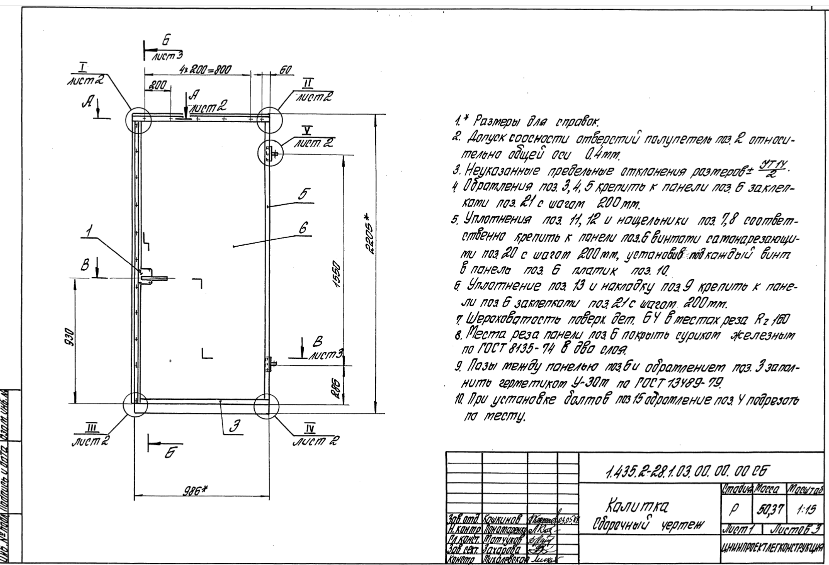 Б
лист 3
4×200=800
60
200
I
лист 2
II
лист 2
А
А
лист 2
V
лист 2
5
6
1
В
В
лист 3
2205*
1550
930
286
III
лист 2
IV
лист 2
3
Б
986*
1.* Размеры для справок.
2. Допуск соосности отверстий полупетель поз. 2 относи-
тельно общей оси 0,4мм.
3. Неуказанные предельные отклонения размеров ±
4. Обрамления поз. 3, 4, 5 крепить к панели поз. 6 заклеп-
ками поз. 21 с шагом 200мм.
5. Уплотнения поз. 11, 12 и нащельники поз. 7,8 соответ-
ственно крепить к панели поз.6 винтами самонарезающи-
ми поз. 20 с шагом 200мм, установив под каждый винт
в панель поз. 6 платик поз. 10.
6. Уплотнение поз. 13 и накладку поз. 9 крепить к пане-
ли поз. 6 заклепками поз. 21 с шагом 200мм.
7. Шероховатость поверх. дет. БЧ в местах реза Rz 160
8. Места реза панели поз. 6 покрыть суриком железным
по ГОСТ 8135-74 в два слоя.
9. Пазы между панелью поз.6 и обрамлением поз. 3 запол-
нить герметиком У-30м по ГОСТ 13489-79.
10. При установке болтов поз. 15 обрамление поз. 4 подрезать
по месту.
1.435.2-28.1.03.00.00.00 СБ
Калитка
Сборочный чертеж
Стадия Масса Масштаб
Р 50,37 1:15
Лист 1 Листов 3
ЦНИИПРОЕКТЛЕГКОНСТРУКЦИЯ
Зав. отд.
Н. контр. Пономаренко
Гл. конст.
Зав. сект. Захарова
Констр.
Подпись и дата